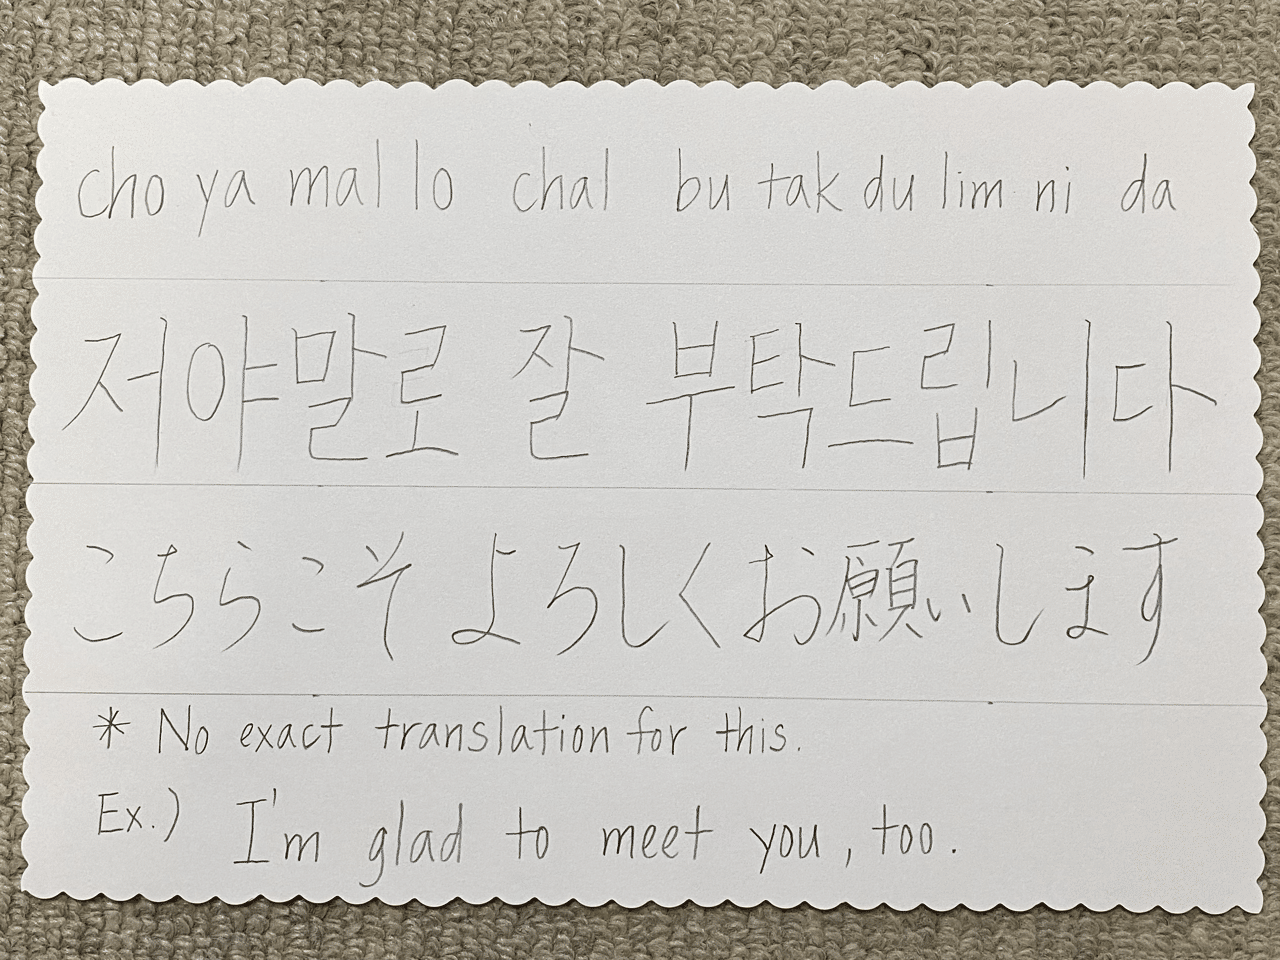 cho ya mal lo chal bu tak du lim ni da
저야말로 잘 부탁드립니다
こちらこそ よろしくお願いします
* No exact translation for this.
Ex.) I'm glad to meet you, too.